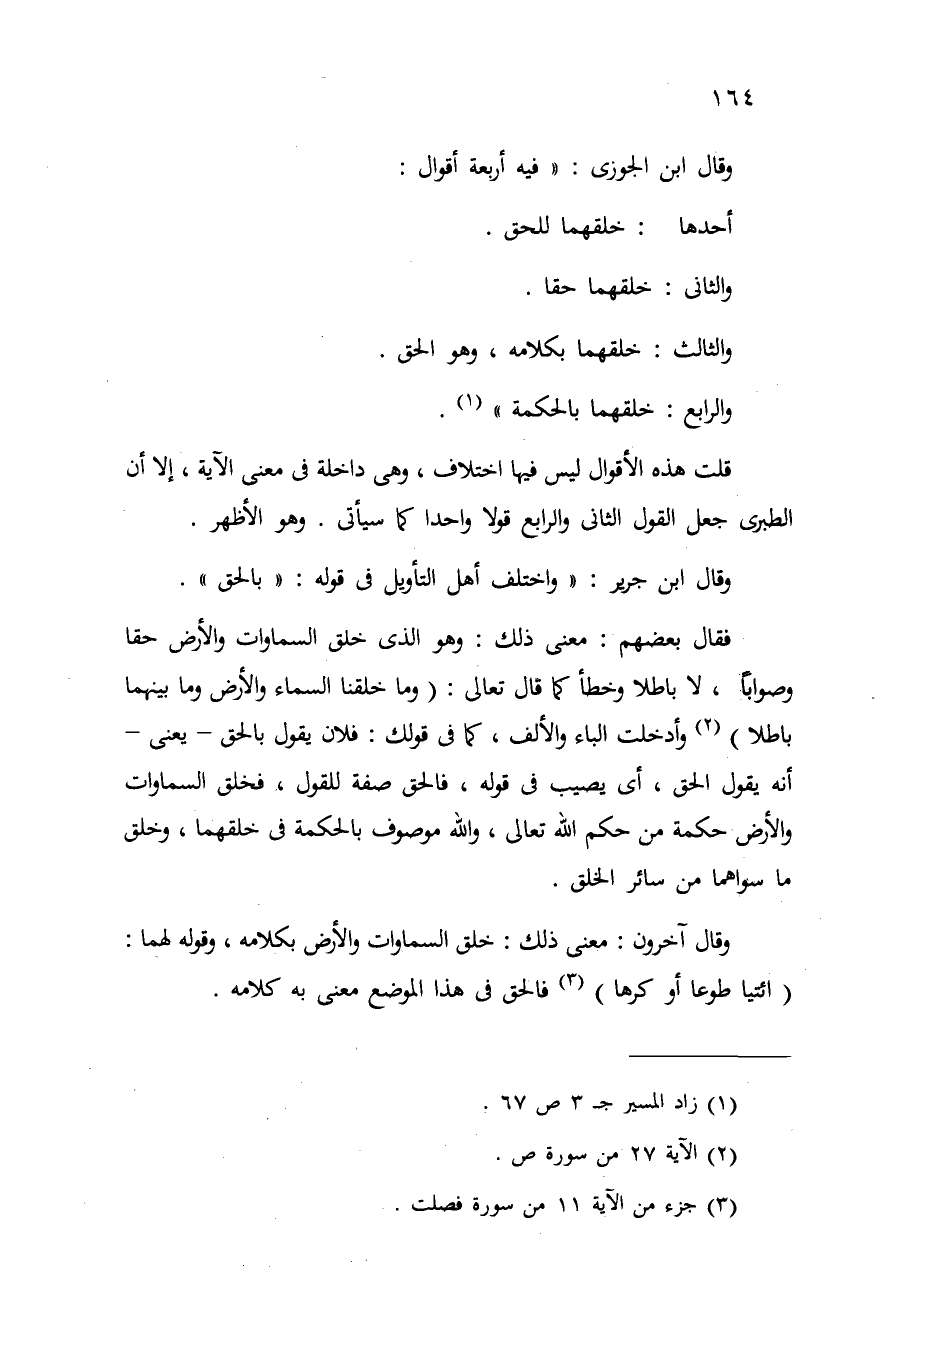 ١٦٤
وقال ابن الجوزى : « فيه أربعة أقوال :
أحدها : خلقهما للحق .
والثانى : خلقهما حقا .
والثالث : خلقهما بكلامه ، وهو الحق .
والرابع : خلقهما بالحكمة » (١) .
قلت هذه الأقوال ليس فيها اختلاف ، وهى داخلة فى معنى الآية ، إلا أن
الطبرى جعل القول الثانى والرابع قولا واحدا كما سيأتى . وهو الأظهر .
وقال ابن جرير : « واختلف أهل التأويل فى قوله : « بالحق » .
فقال بعضهم : معنى ذلك : وهو الذى خلق السماوات والأرض حقا
وصواباً ، لا باطلا وخطأ كما قال تعالى : ( وما خلقنا السماء والأرض وما بينهما
باطلا ) (٢) وأدخلت الباء والألف ، كما فى قولك : فلان يقول بالحق – يعنى –
أنه يقول الحق ، أى يصيب فى قوله ، فالحق صفة للقول ، فخلق السماوات
والأرض حكمة من حكم الله تعالى ، والله موصوف بالحكمة فى خلقهما ، وخلق
ما سواهما من سائر الخلق .
وقال آخرون : معنى ذلك : خلق السماوات والأرض بكلامه ، وقوله لهما :
( ائتيا طوعا أو كرها ) (٣) فالحق فى هذا الموضع معنى به كلامه .
(١) زاد المسير جـ ٣ ص ٦٧ .
(٢) الآية ٢٧ من سورة ص .
(٣) جزء من الآية ١١ من سورة فصلت .